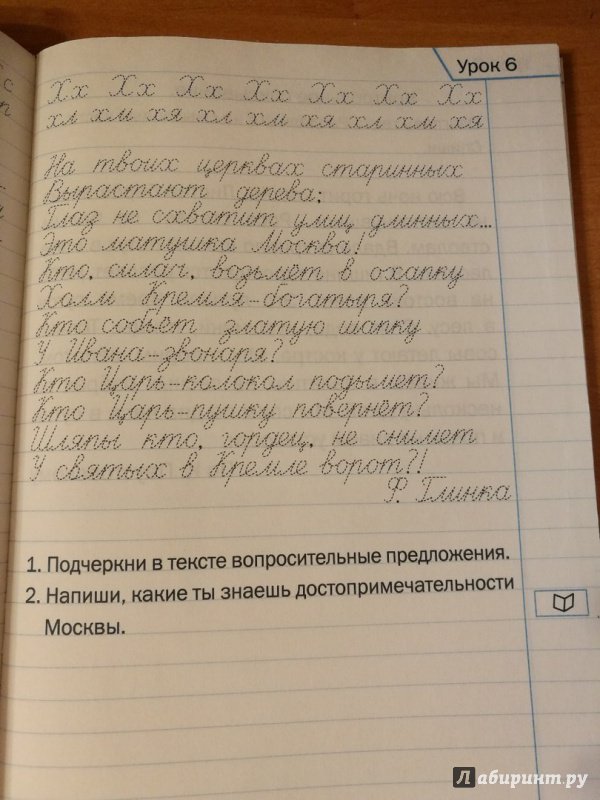 Урок 6
Хх Хх Хх Хх Хх Хх Хх
хл хм хя хл хм хя хл хм хя
На твоих церквах старинных
Вырастают дерева;
Глаз не схватит улиц длинных...
Это матушка Москва!
Кто, силач, возьмёт в охапку
Холм Кремля-богатыря?
Кто собьёт златую шапку
У Ивана-звонаря?
Кто Царь-колокол подымет?
Кто Царь-пушку повернёт?
Шляпы кто, гордец, не снимет
У святых в Кремле ворот?!
Ф. Глинка
1. Подчеркни в тексте вопросительные предложения.
2. Напиши, какие ты знаешь достопримечательности
Москвы.
Лабиринт.ру